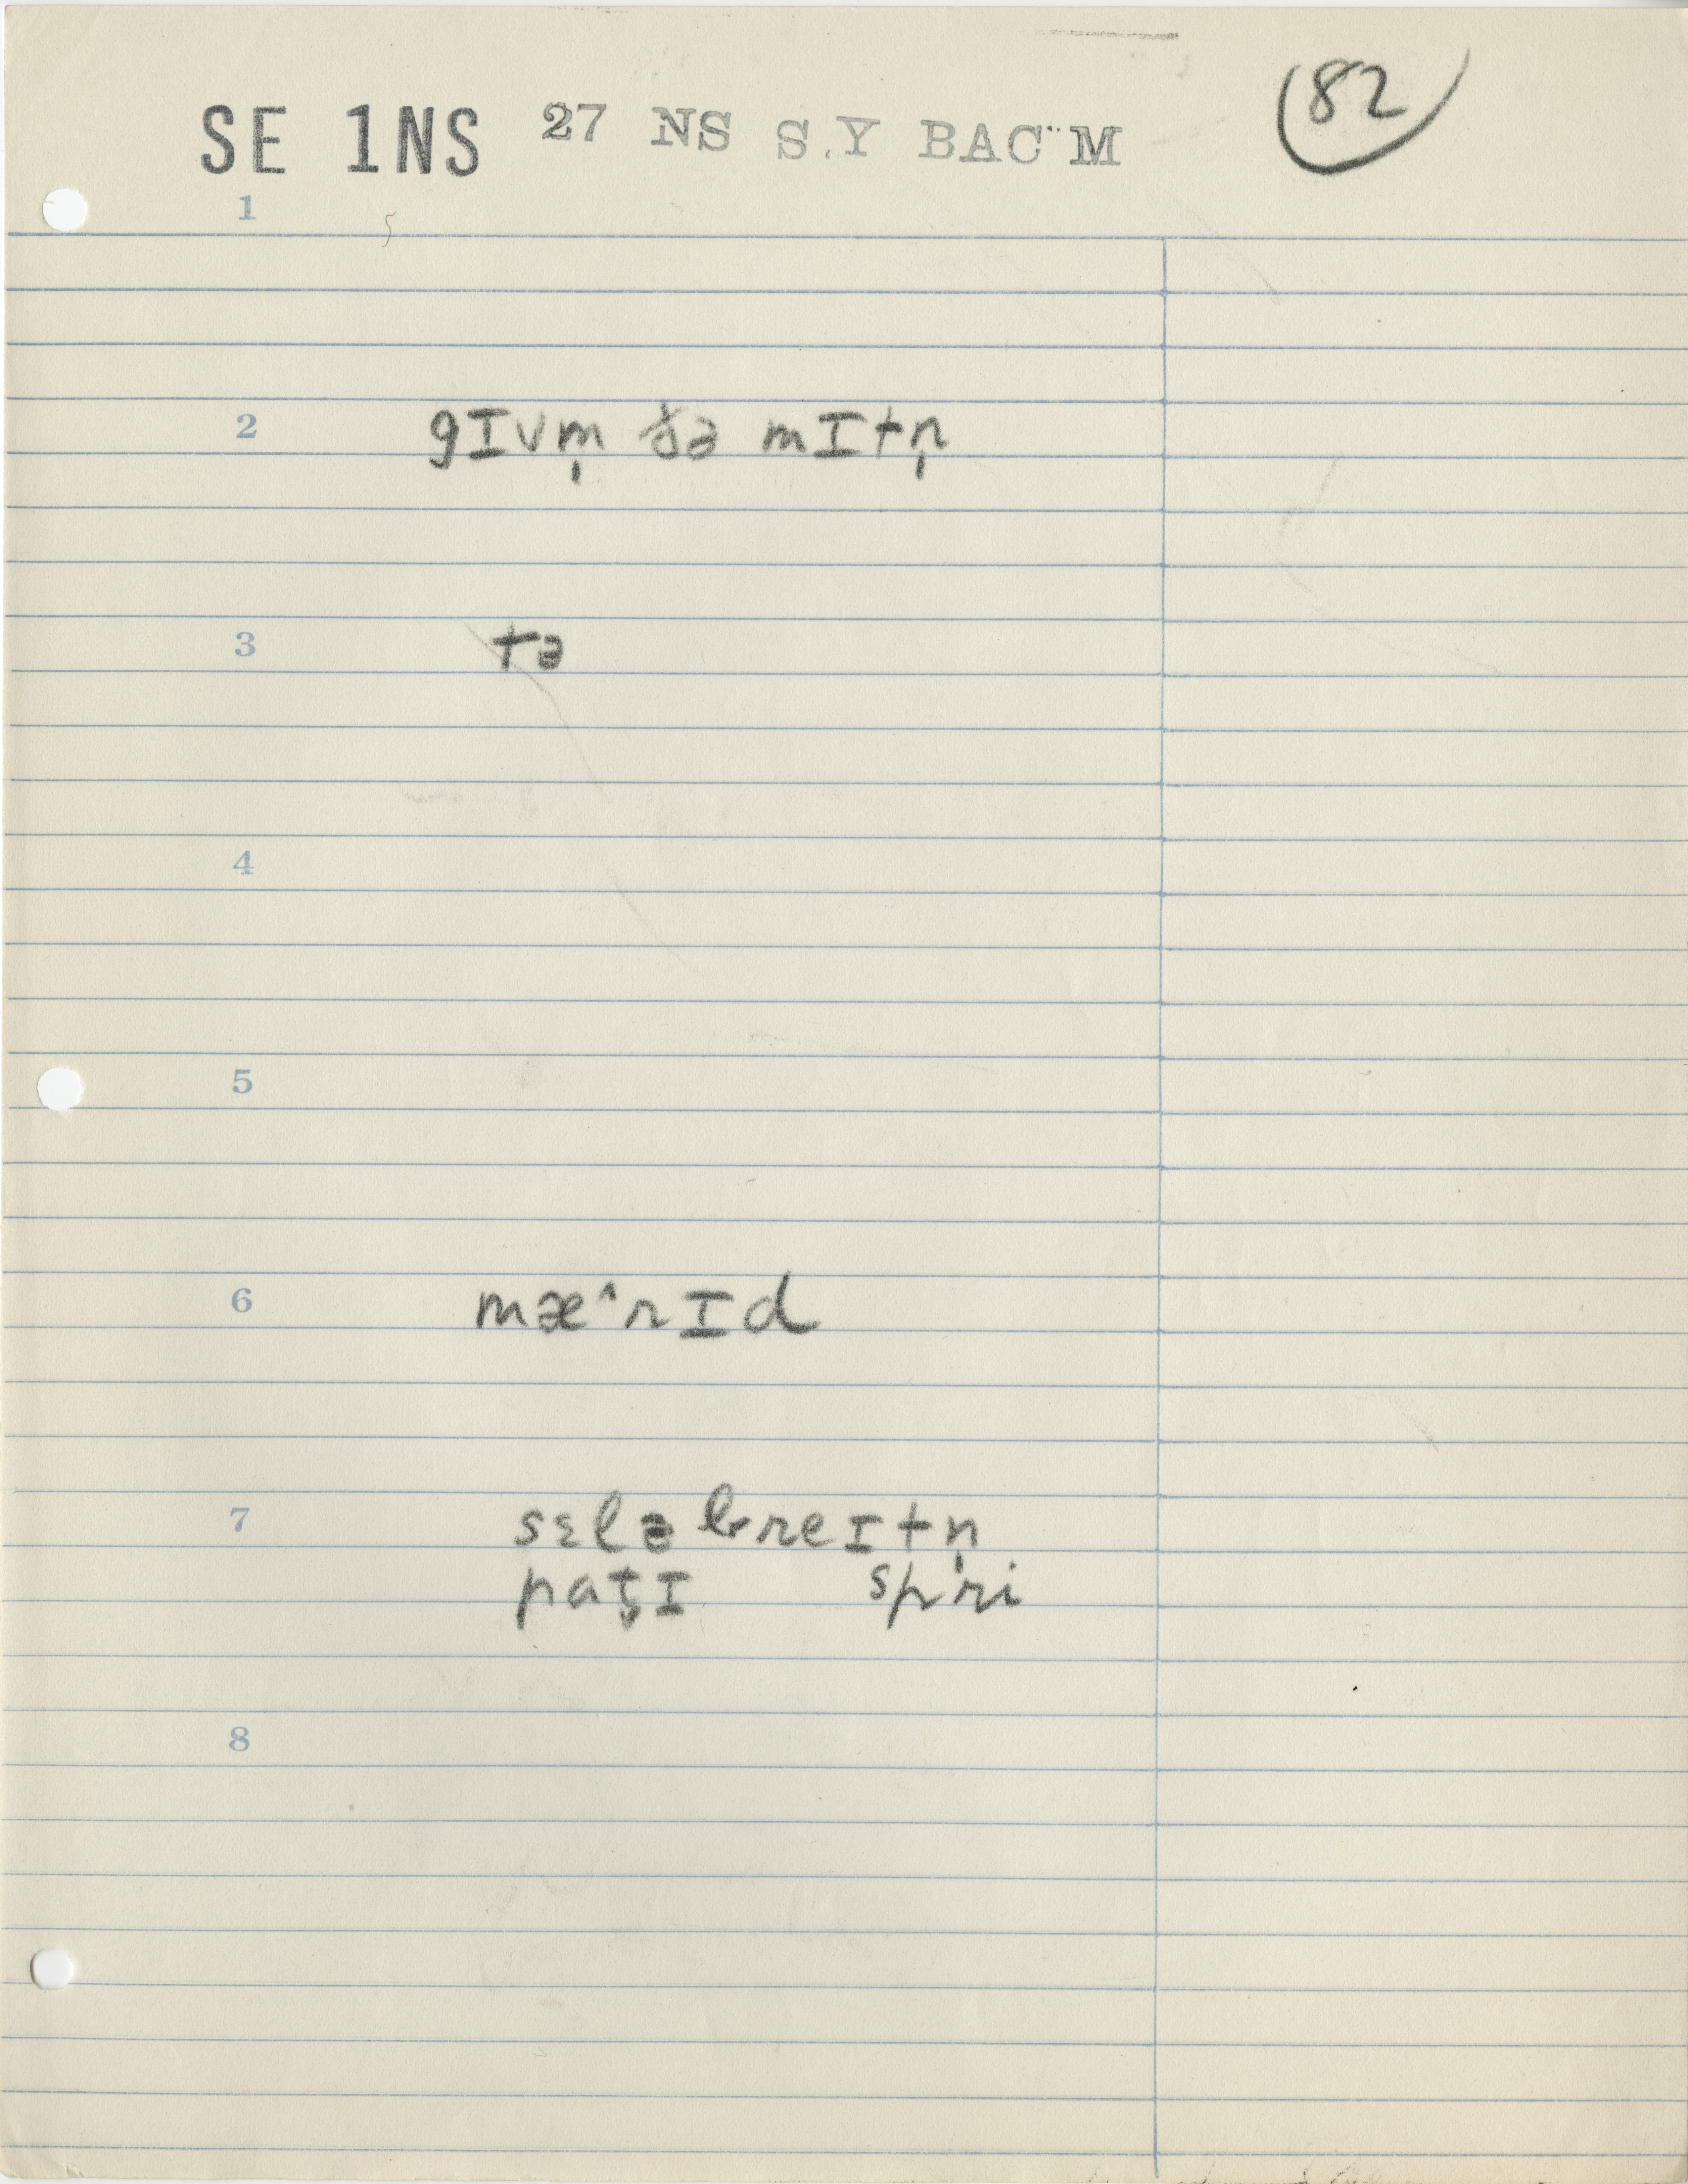 SE 1NS 27 NS S.Y BAC M 82
1
2 gɪvm̩ ðə mɪtn̩
3 tə
4
5
6 mæ^rɪd
7 sɛləbreɪtn̩
pat̬ɪ spri
8